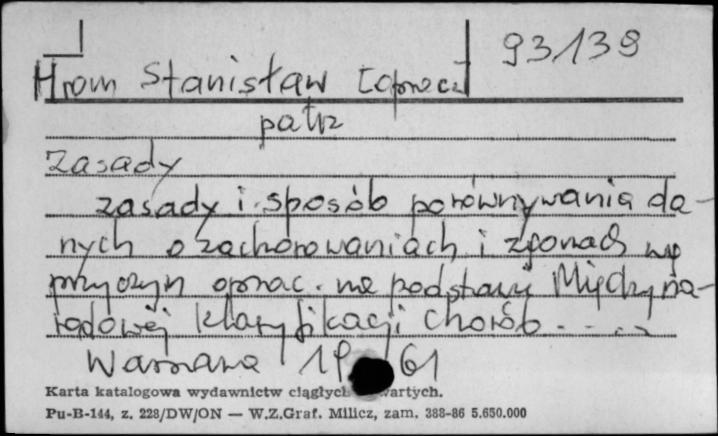 93139
Hrom Stanisław [oprac.]
patrz
Zasady
zasady i sposób porównywania da-
nych o zachorowaniach i zgonach wg
przyczyn oprac. na podstawie Międzyna-
rodowej klasyfikacji chorób.....
Warszawa 1961
Karta katalogowa wydawnictw ciągłych wartych.
Pu-B-144, z. 228/DW/ON — W.Z.Graf. Milicz, zam. 388-86 5.650.000